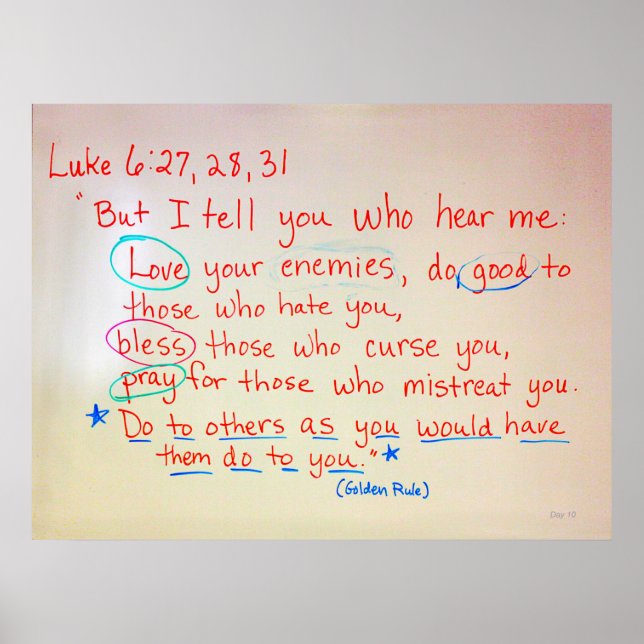 Luke 6:27, 28, 31
"But I tell you who hear me:
Love your enemies, do good to
those who hate you,
bless those who curse you,
pray for those who mistreat you.
* Do to others as you would have
them do to you." *
(Golden Rule)
Day 10